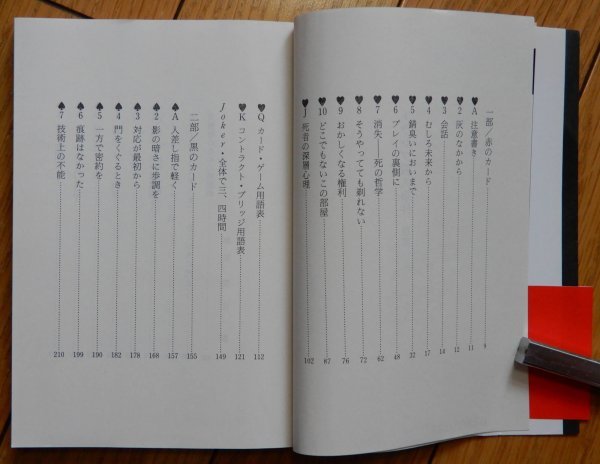 一部／赤のカード……9
♥A 注意書き……11
♥2 灰のなかから……12
♥3 会話……14
♥4 むしろ未来から……17
♥5 錆臭いにおいまで……32
♥6 プレイの裏側に……48
♥7 消失——死の哲学……62
♥8 そうやってても剃れない……72
♥9 おかしくなる権利……76
♥10 どこでもないこの部屋……87
♥J 死者の深層心理……102
♥Q カード・ゲーム用語表……112
♥K コントラクト・ブリッジ用語表……121
Joker・全体で三、四時間……149
二部／黒のカード……155
♠A 人差し指で軽く……157
♠2 影の暗さに歩調を……168
♠3 対応が最初から……178
♠4 門をくぐるとき……182
♠5 一方で密約を……190
♠6 痕跡はなかった……199
♠7 技術上の不能……210